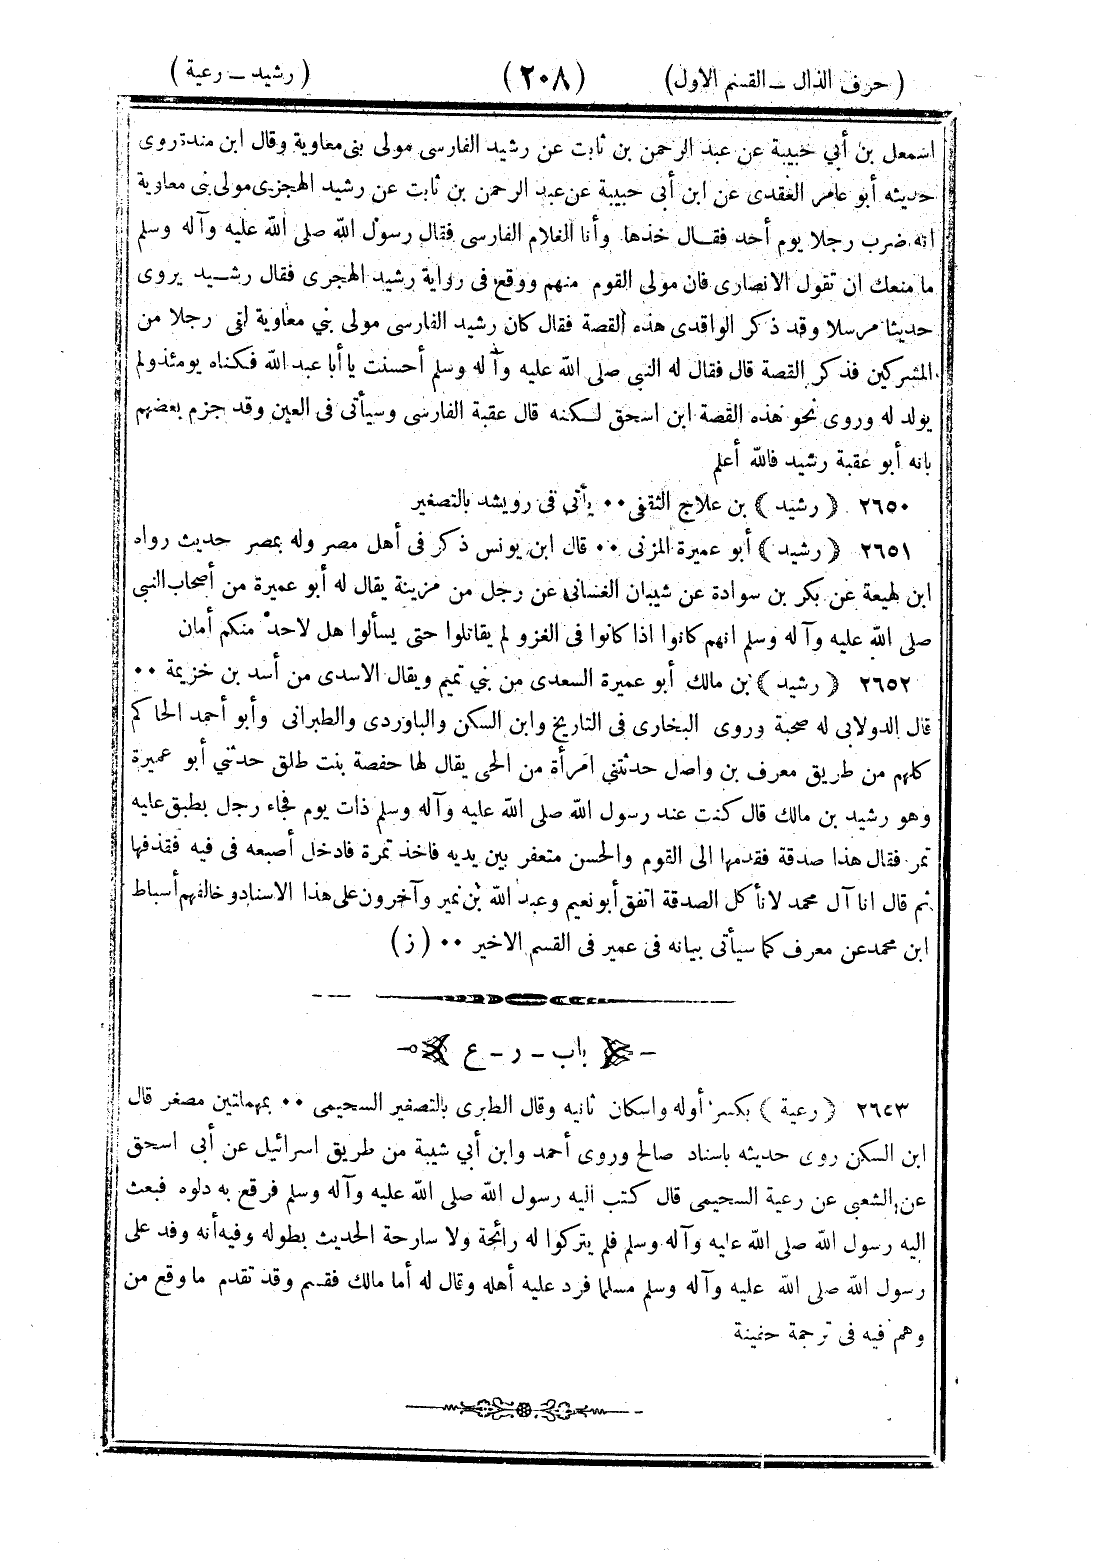 ( حرف الذال ــ القسم الاول ) ( ٢٠٨ ) ( رشيد ــ رعية )
اسمعل بن أبي حبيبة عن عبد الرحمن بن ثابت عن رشيد الفارسى مولى بنى معاوية وقال ابن مندة روى
حديثه أبو عامر العقدى عن ابن أبى حبيبة عن عبد الرحمن بن ثابت عن رشيد الهجرى مولى بنى معاوية
انه ضرب رجلا يوم أحد فقال خذها وأنا الغلام الفارسى فقال رسول الله صلى الله عليه وآله وسلم
ما منعك ان تقول الانصارى فان مولى القوم منهم ووقع فى رواية رشيد الهجرى فقال رشيد يروى
حديثا مرسلا وقد ذكر الواقدى هذه القصة فقال كان رشيد الفارسى مولى بني معاوية لقى رجلا من
المشركين فذكر القصة قال فقال له النبي صلى الله عليه وآله وسلم أحسنت يا أبا عبد الله فكناه يومئذ ولم
يولد له وروى نحو هذه القصة ابن اسحق لكنه قال عقبة الفارسى وسيأتى فى العين وقد جزم بعضهم
بانه أبو عقبة رشيد فالله أعلم
٢٦٥٠ ( رشيد ) بن علاج الثقفى ٠٠ يأتى فى رويشد بالتصغير
٢٦٥١ ( رشيد ) أبو عميرة المزنى ٠٠ قال ابن يونس ذكر فى أهل مصر وله بمصر حديث رواه
ابن لهيعة عن بكر بن سوادة عن شيبان الغسانى عن رجل من مزينة يقال له أبو عميرة من أصحاب النبي
صلى الله عليه وآله وسلم انهم كانوا اذا كانوا فى الغزو لم يقاتلوا حتى يسألوا هل لاحد منكم أمان
٢٦٥٢ ( رشيد ) بن مالك أبو عميرة السعدى من بني تميم ويقال الاسدى من أسد بن خزيمة ٠٠
قال الدولابى له صحبة وروى البخارى فى التاريخ وابن السكن والباوردى والطبرانى وأبو أحمد الحاكم
كلهم من طريق معرف بن واصل حدثتني امرأة من الحى يقال لها حفصة بنت طلق حدثني أبو عميرة
وهو رشيد بن مالك قال كنت عند رسول الله صلى الله عليه وآله وسلم ذات يوم فجاء رجل بطبق عليه
تمر فقال هذا صدقة فقدمها الى القوم والحسن متعفر بين يديه فاخذ تمرة فادخل أصبعه فى فيه فقذفها
ثم قال انا آل محمد لا نأكل الصدقة اتفق أبو نعيم وعبد الله بن نمير وآخرون على هذا الاسناد وخالفهم أسباط
ابن محمد عن معرف كما سيأتى بيانه فى عمير فى القسم الاخير ٠٠ ( ز )
باب ــ ر ــ ع
٢٦٤٣ ( رعية ) بكسر أوله واسكان ثانيه وقال الطبرى بالتصغير السحيمى ٠٠ بمهملتين مصغر قال
ابن السكن روى حديثه باسناد صالح وروى أحمد وابن أبي شيبة من طريق اسرائيل عن أبى اسحق
عن الشعبى عن رعية السحيمى قال كتب اليه رسول الله صلى الله عليه وآله وسلم فرقع به دلوه فبعث
اليه رسول الله صلى الله عليه وآله وسلم فلم يتركوا له رائحة ولا سارحة الحديث بطوله وفيه أنه وفد على
رسول الله صلى الله عليه وآله وسلم مسلما فرد عليه أهله وقال له أما مالك فقسم وقد تقدم ما وقع من
وهم فيه فى ترجمة حنينة